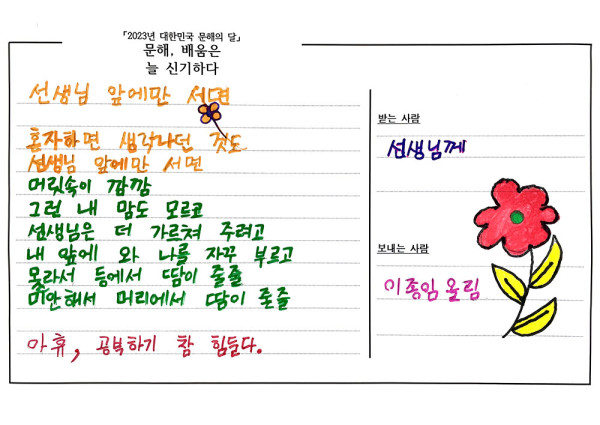 「2023년 대한민국 문해의 달」
문해, 배움은
늘 신기하다
선생님 앞에만 서면
혼자하면 생각나던 것도
선생님 앞에만 서면
머릿속이 깜깜
그런 내 맘도 모르고
선생님은 더 가르쳐 주려고
내 앞에 와 나를 자꾸 부르고
몰라서 등에서 땀이 줄줄
미안해서 머리에서 땀이 줄줄
아휴, 공부하기 참 힘들다.
받는 사람
선생님께
보내는 사람
이종임 올림